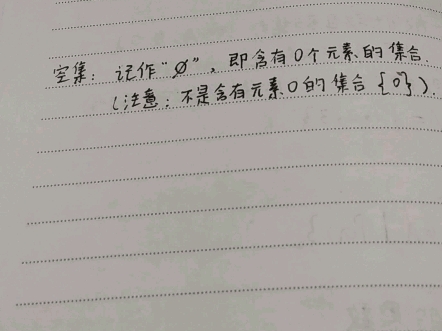 空集：记作“∅”，即含有0个元素的集合.
（注意：不是含有元素0的集合{0}）.